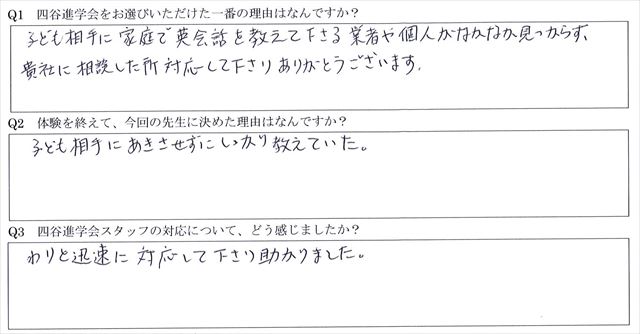 Q1 四谷進学会をお選びいただけた一番の理由はなんですか？
子ども相手に家庭で英会話を教えて下さる業者や個人がなかなか見つからず、
貴社に相談した所対応して下さりありがとうございます。
Q2 体験を終えて、今回の先生に決めた理由はなんですか？
子ども相手にあきさせずにしっかり教えていた。
Q3 四谷進学会スタッフの対応について、どう感じましたか？
わりと迅速に対応して下さり助かりました。